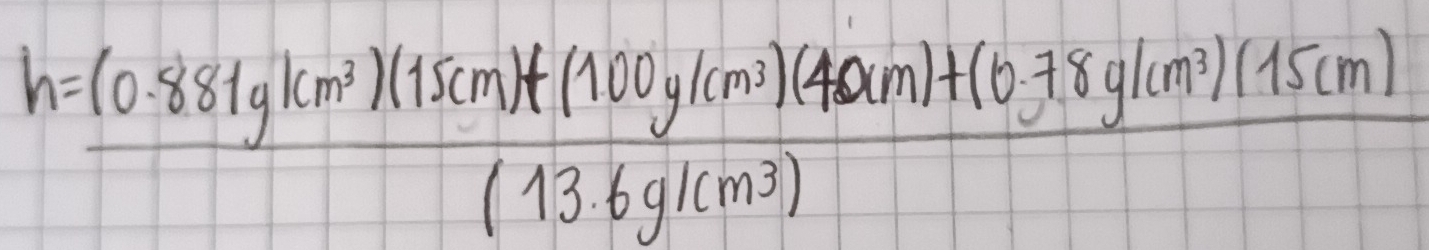 h=(0.881g/cm³)(15cm)+(1.00g/cm³)(40cm)+(0.78g/cm³)(15cm)
(13.6g/cm³)